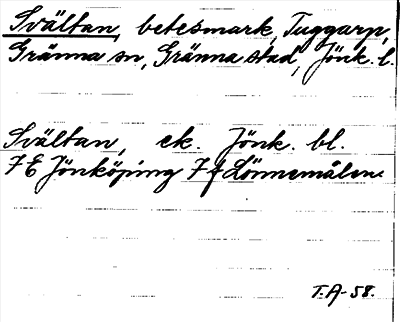 Svältan, betesmark, Tuggarp,
Gränna sn, Gränna stad, Jönk. l.
Svältan, ek. Jönk. bl.
7 E Jönköping 7 f Lönnemålen.
T.A-58.